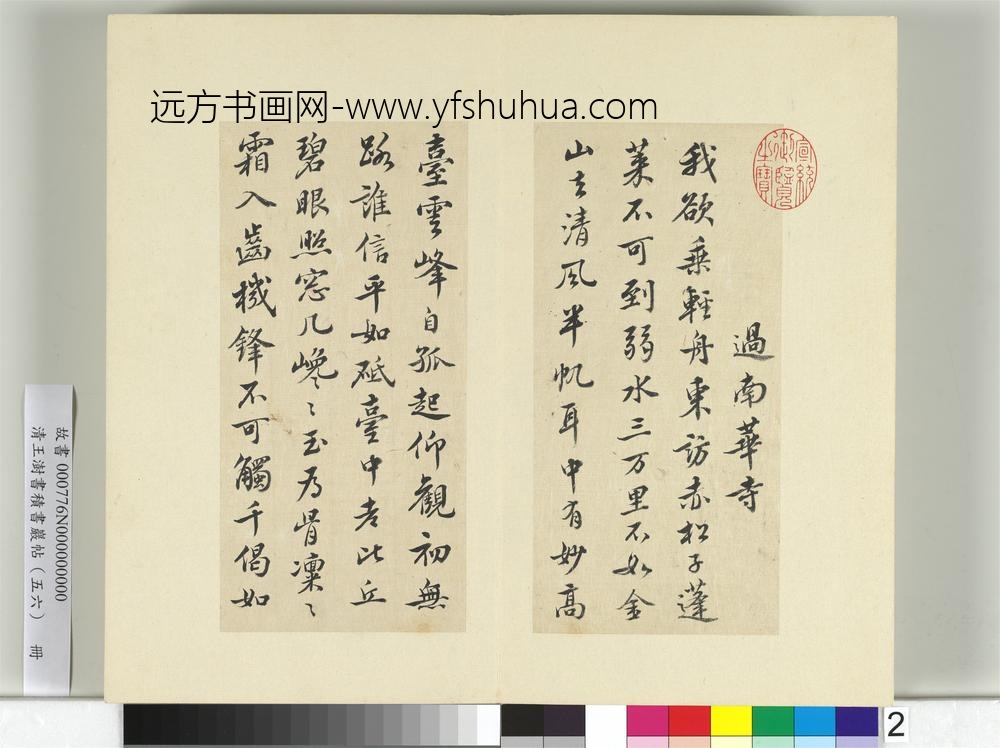 远方书画网-www.yfshuhua.com
宣統御覽之寶
過南華寺
我欲乗輕舟東訪赤松子蓬
萊不可到弱水三万里不如金
山去清風半帆耳中有妙髙
臺雲峰自孤起仰觀初無
路誰信平如砥臺中老比丘
碧眼照窓几巉〻玉為骨凜〻
霜入齒機鋒不可觸千偈如
故書 000776N000000000
清王澍書積書巖帖（五六） 冊
2